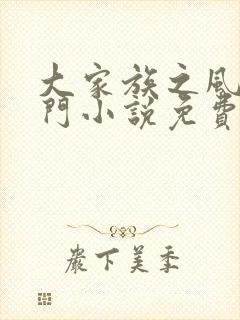 大家族之風
門小說免費
嚴下美季